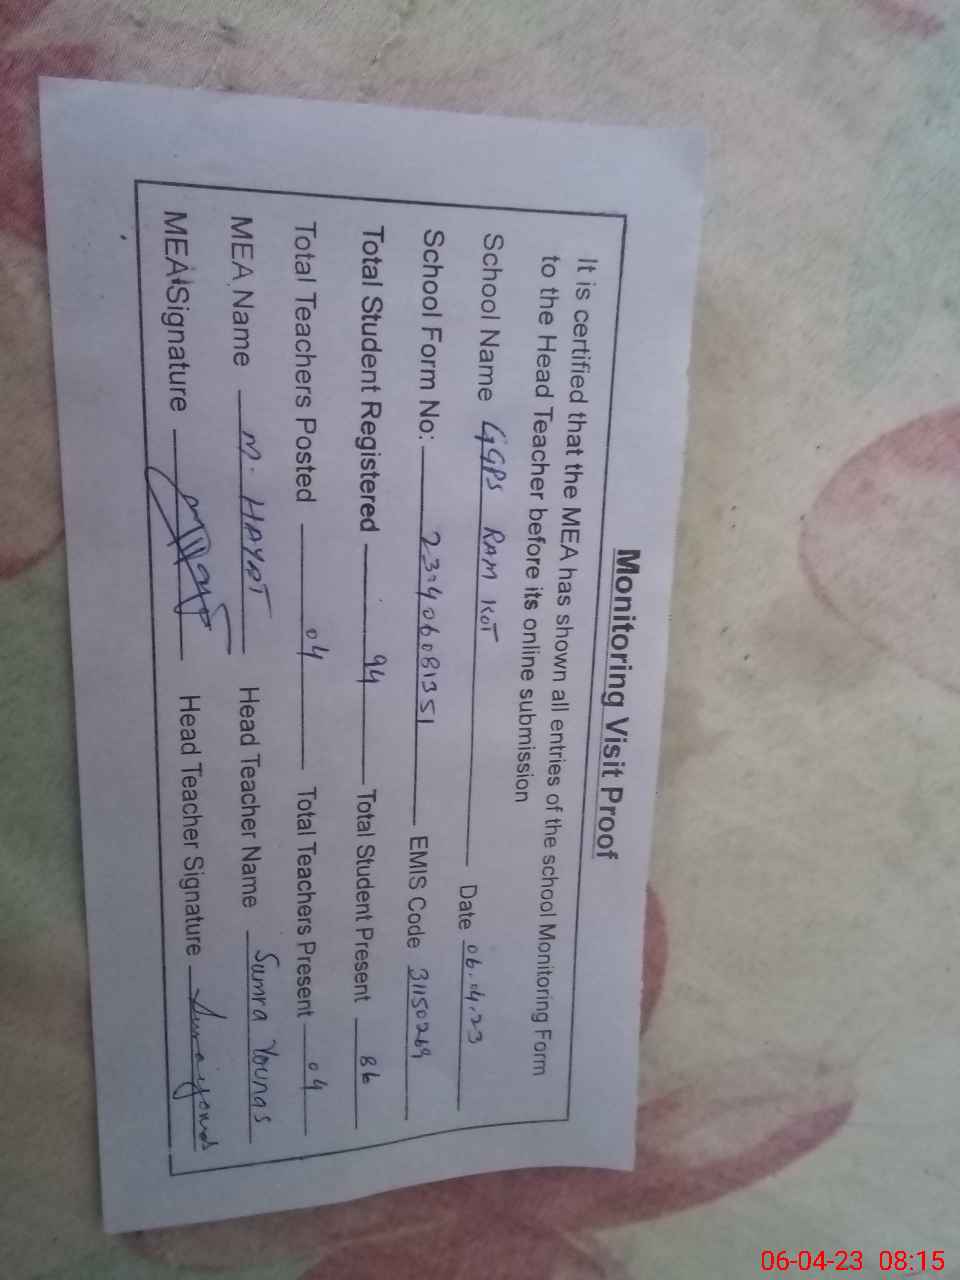 Monitoring Visit Proof
It is certified that the MEA has shown all entries of the school Monitoring Form
to the Head Teacher before its online submission
School Name GGPS RAM KOT Date 06.04.23
School Form No: 23-406081351 EMIS Code 31150269
Total Student Registered 94 Total Student Present 86
Total Teachers Posted 04 Total Teachers Present 04
MEA Name M. HAYAT Head Teacher Name Sumra Younas
MEA Signature Head Teacher Signature
06-04-23 08:15